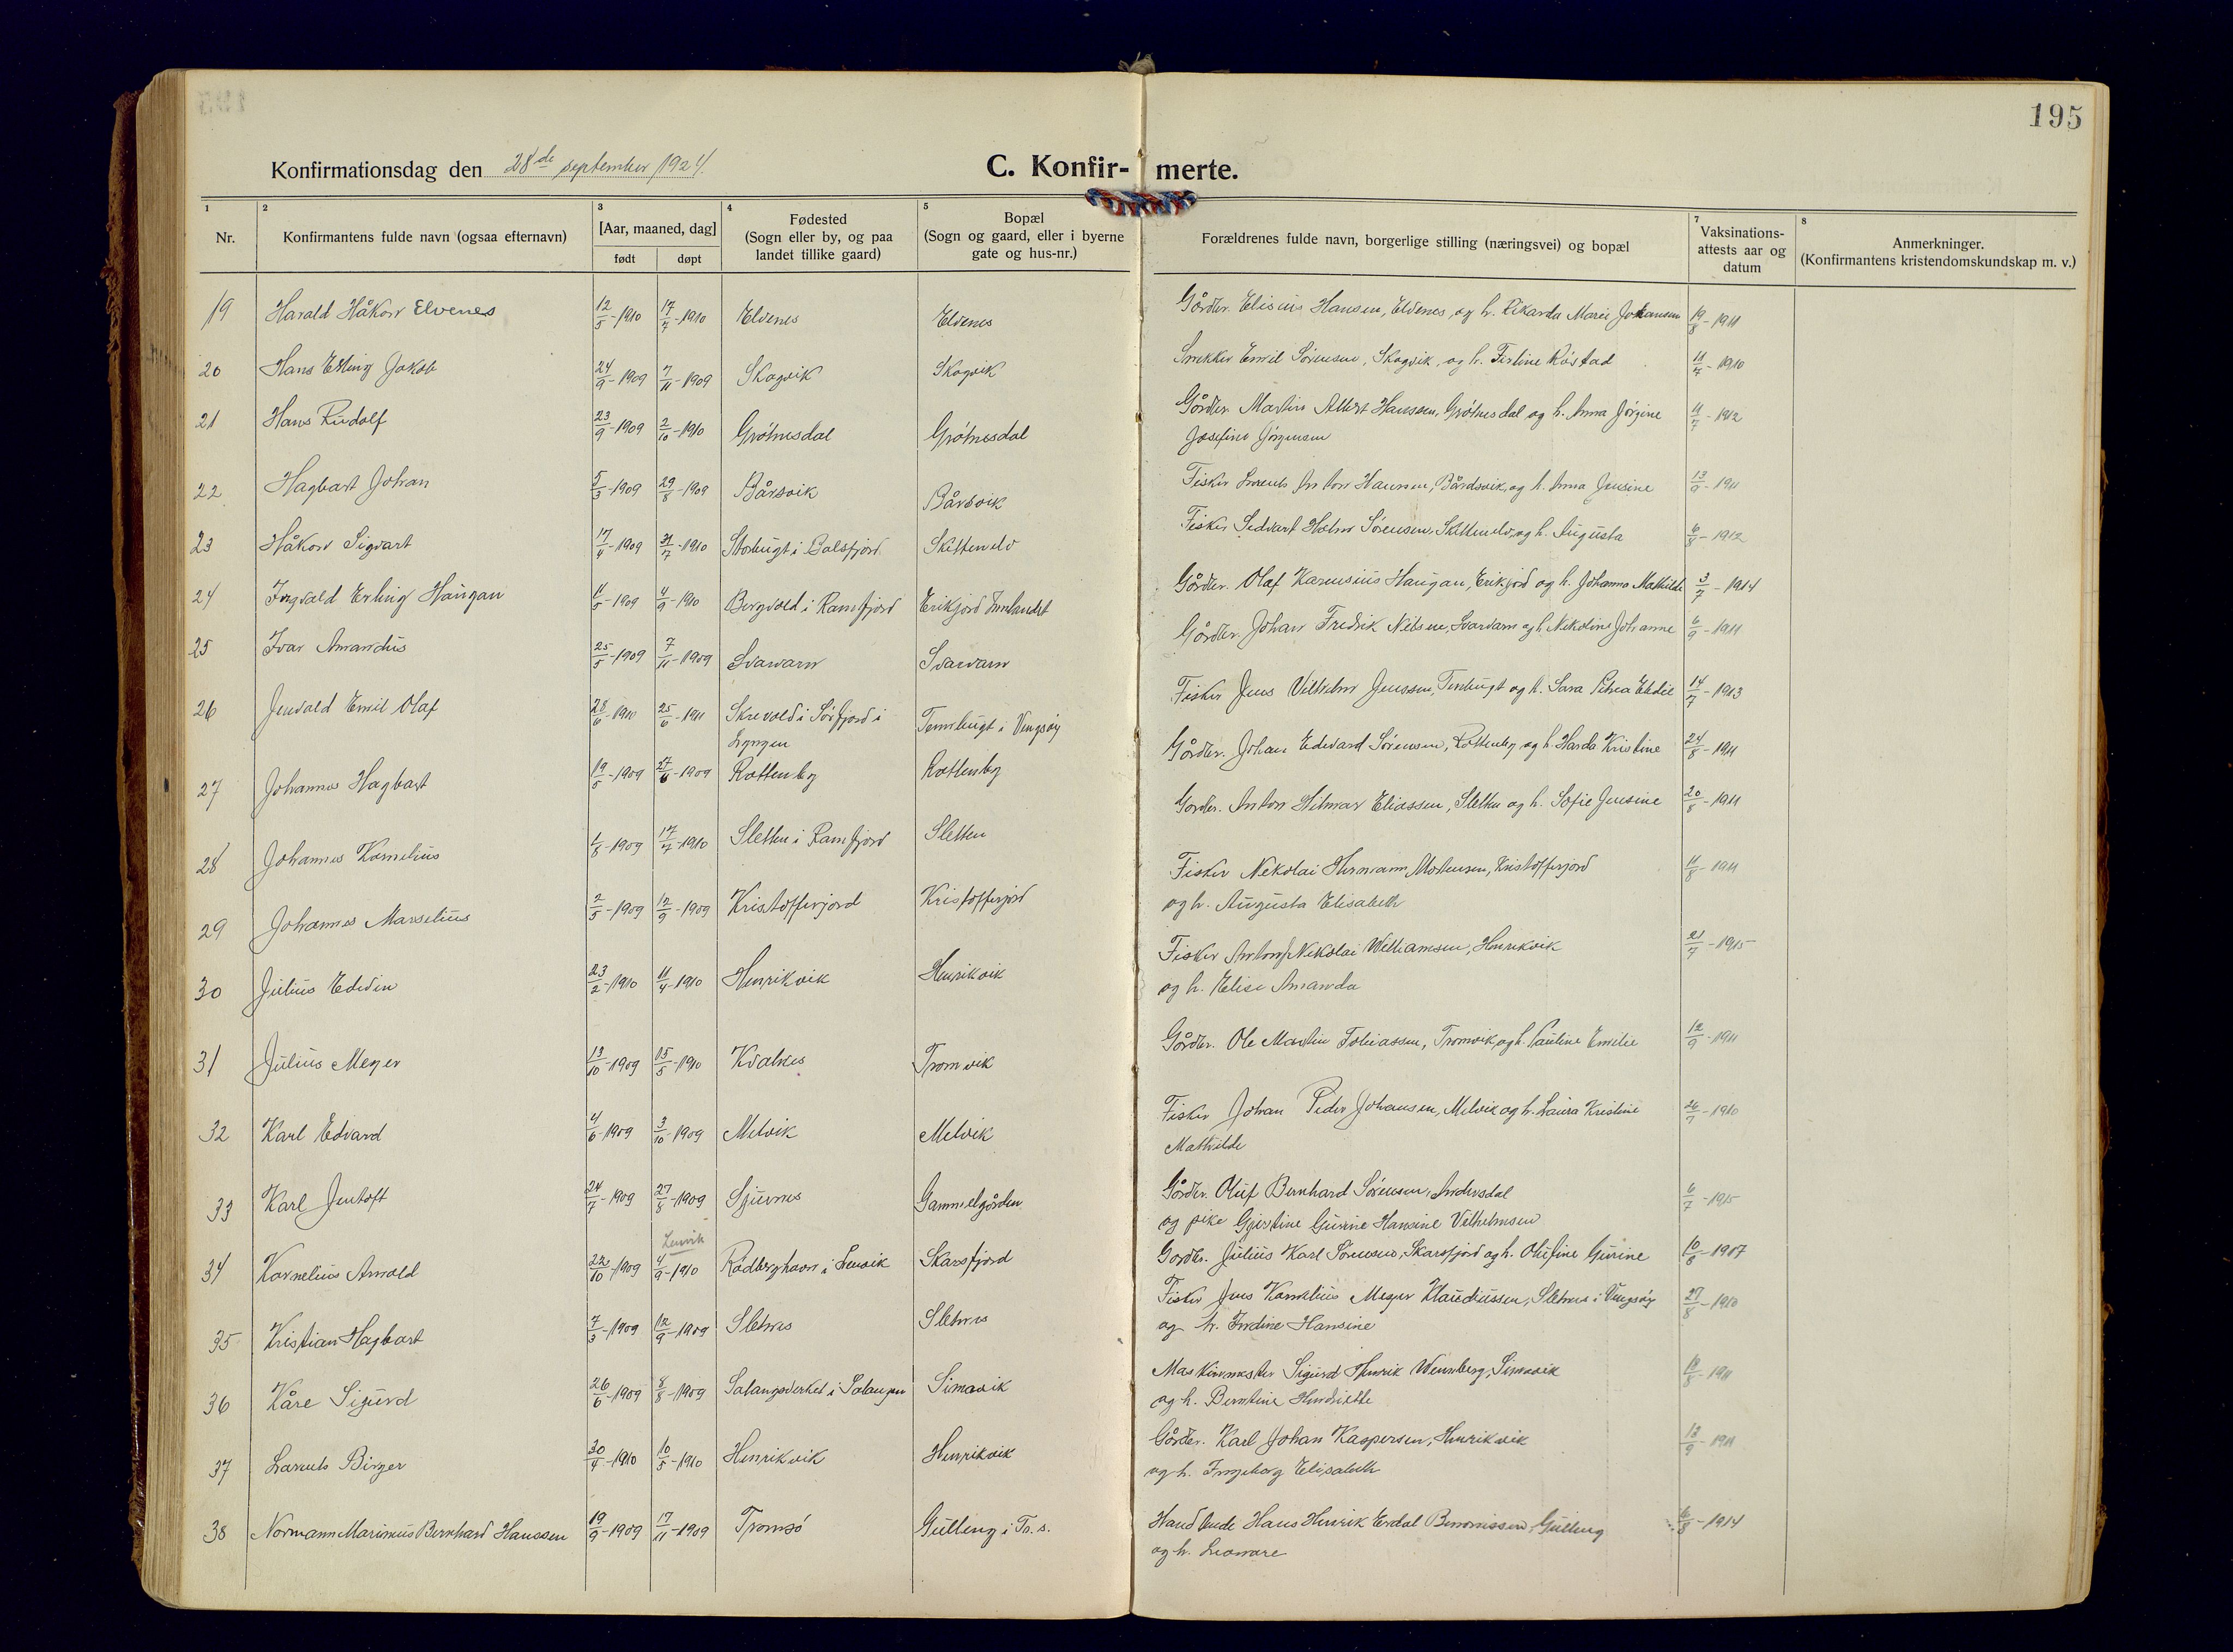 195
Konfirmationsdag den 28de september 1924.
C. Konfir- merte.
1 2 3 4 5 7 8
Nr.
Konfirmantens fulde navn (ogsaa efternavn)
[Aar, maaned, dag]
født døpt
Fødested
(Sogn eller by, og paa
landet tillike gaard)
Bopæl
(Sogn og gaard, eller i byerne
gate og hus-nr.)
Forældrenes fulde navn, borgerlige stilling (næringsvei) og bopæl
Vaksinations-
attests aar og
datum
Anmerkninger.
(Konfirmantens kristendomskundskap m. v.)
19 Harald Håkon Elvenes 12/5-1910 17/7-1910 Elvenes Elvenes Gårdbr. Elisius Hansen, Elvenes, og h. Rikarda Marie Johansen 19/8-1911
20 Hans Erling Jakob 24/9-1909 7/11-1909 Skogvik Skogvik Snekker Emil Sørensen, Skogvik, og h. Røstad 11/7-1910
21 Hans Rudolf 23/9-1909 2/10-1910 Grøtnesdal Grøtnesdal Gårdbr. Martin Albert Hanssen, Grøtnesdal og h. Anna Jørgine 11/7-1912
Josefine Jørgensen
22 Hagbart Johan 5/3-1909 29/8-1909 Bårsvik Bårsvik Fisker Lorents Anton Hansen, Bårdsvik, og h. Anna Jensine 13/9-1911
23 Håkon Sigvart 17/4-1909 31/7-1910 Storbugt i Balsfjord Skittenelv Fisker Sedvart Holm Sørensen, Skittenelv, og h. Augusta 6/8-1912
24 Ingvald Erling Haugan 11/5-1909 4/9-1910 Bergvold i Ramfjord Erikjord Gårdbr. Olaf Karensius Haugan, Erikjord og h. Johanna Mathilde 3/7-1914
25 Ivar Amandus 25/5-1909 7/11-1909 Svarvarn Svarvarn Gårdbr. Johan Fredrik Nilsen, Svarvarn og h. Nekoline Johanne 6/9-1911
26 Jenvald Emil Olaf 28/6-1910 25/6-1911 Skrevold i Sørfjord i Tennbugt i Vengsøy Fisker Jens Vilhelm Jenssen, Tennbugt og h. Sara Petrea 14/7-1913
Lyngen
27 Johannes Hagbart 19/5-1909 27/6-1909 Rottenby Rottenby Gårdbr. Johan Edvard Sørensen, Rottenby og h. Harda Kristine 24/8-1911
28 Johannes Kornelius 1/8-1909 17/7-1910 Sletten i Ramfjord Sletten Gårdbr. Anton Hilmar Eliassen, Sletten og h. Sofie Jensine 20/8-1911
29 Johannes Marselius 2/5-1909 12/9-1909 Kristofferjord Kristofferjord Fisker Nekolai Hermann Mortensen, Kristofferjord 11/8-1911
og h. Augusta Elisabeth
30 Julius Edvin 23/2-1910 11/4-1910 Henrikvik Henrikvik Fisker Anton Nekolai Williamsen, Henrikvik 21/7-1915
og h. Elise Amanda
31 Julius Meyer 13/10-1909 15/5-1910 Kvalnes Tromvik Gårdbr. Ole Martin Tobiassen, Tromvik, og h. Pauline Emilie 12/9-1911
32 Karl Edvard 4/6-1909 3/10-1909 Melvik Melvik Fisker Johan Peder Johansen, Melvik og h. Laura Kristine 26/7-1910
Mathilde
33 Karl Jentoft 24/7-1909 27/8-1909 Sjursnes Gammelgården Gårdbr. Oluf Bernhard Sørensen, Andersdal 6/7-1915
og pike Gjertine Gurine Hansine Vilhelmsen
Lenvik
34 Kornelius Arnold 22/10-1909 4/9-1910 Rødberghavn i Lenvik Skarsfjord Gårdbr. Julius Karl Sørensen, Skarsfjord og h. Olufine Gurine 10/8-1917
35 Kristian Hagbart 7/3-1909 12/9-1909 Sletnes Sletnes Fisker Jens Kornelius Meyer Klaudiussen, Sletnes i Vengsøy 27/8-1910
og h. Hansine
36 Kåre Sigurd 26/6-1909 8/8-1909 Salangsverket i Salangen Simavik Maskinmester Sigurd Henrik Wennberg, Simavik 18/8-1911
og h. Berntine Hendriette
37 Lorents Birger 30/4-1910 10/5-1910 Henrikvik Henrikvik Gårdbr. Karl Johan Kaspersen, Henrikvik 13/9-1911
og h. Ingeborg Elisabeth
38 Normann Marinius Bernhard Hanssen 19/9-1909 17/11-1909 Tromsø Gulleng i Tr. s. Handlende Hans Henrik Erdal Benonissen, Gulleng 6/8-1914
og h. Leonore